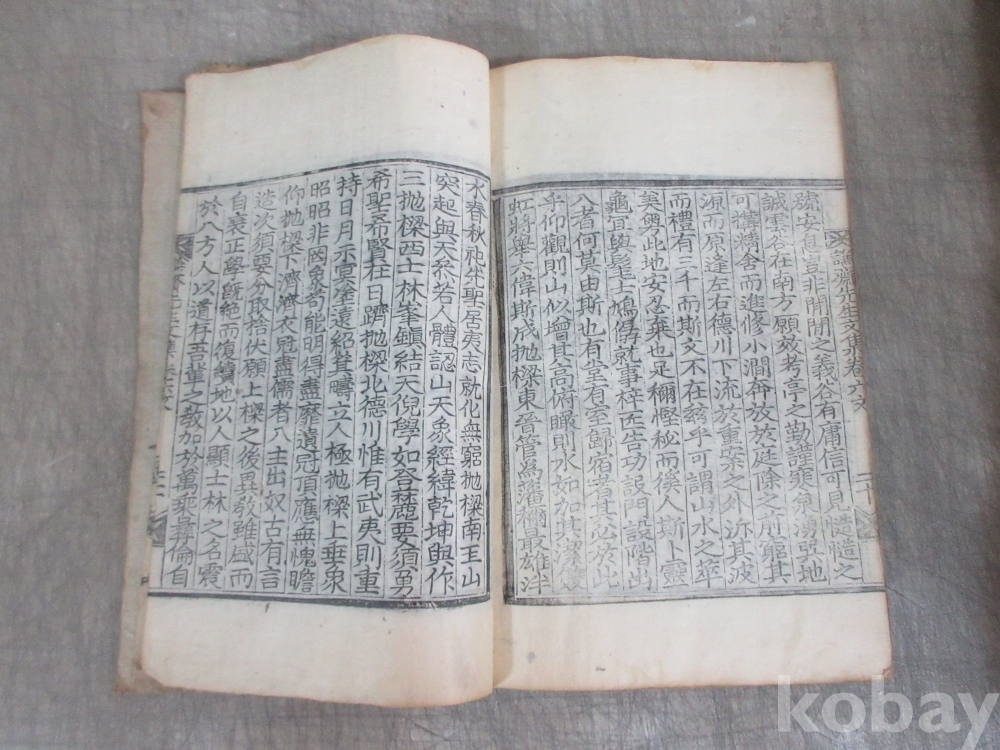 安息豈非開閉之義谷有庸信可見慥慥之
誠雲谷在南方願效考亭之勤護爽泉湧亞地
可構精舍而進修小澗奔放於庭除之前窮其
源而原逢左右德川下流於重案之外泝其波
而禮有三千而斯文不在玆乎可謂山水之萃
美粤此地安忍棄也足稱慳秘而俟人斯卜靈
龜宜與髦士鳩僝就事梓匠告功設門設階出
入者何莫由斯也有堂有室歸宿者其必於此
乎仰觀則山似增其高俯瞰則水如加其深
虹將擧六偉斯成拋樑東晉管爲藩稱最雄泮
水春秋祀先聖居夷志就化無窮拋樑南王山
突起與天參若人體認山天象經緯乾坤與作
三拋樑西士林峯鎭結天倪學如登麓要須勇
希聖希賢柱日躋拋樑北德川惟有武夷則重
持日月示宣室遠紹箕疇立人極拋樑上垂象
昭昭非罔象苟能明得盡靡遺冠頂應無愧瞻
仰拋樑下濟濟衣冠盡儒者入主出奴古有言
造次須要分取捨伏願上樑之後異敎雖盛而
自衰正學旣絶而復續地以人顯士林之名震
於八方人以道存吾輩之敎加於萬乘彛倫自
先生文集卷六 文
kobay